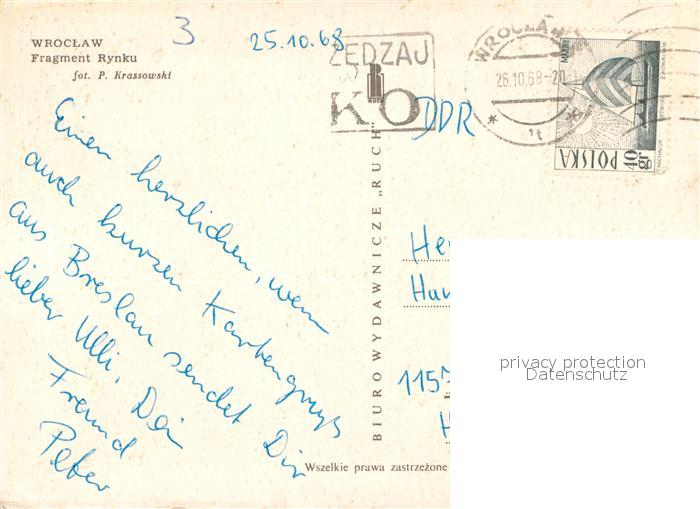 WROCŁAW
Fragment Rynku
fot. P. Krassowski
3
25.10.68
ZĘDZAJ
KO
WROCŁAW
26.10.68-20
POLSKA
40 gr
DDR
Einen herzlichen, wenn
auch kurzen Kartengruß
aus Breslau sendet Dir
lieber Ulli, Dein
Freund
Peter
BIURO WYDAWNICZE „RUCH"
He
Hu
115
H
privacy protection
Datenschutz
Wszelkie prawa zastrzeżone